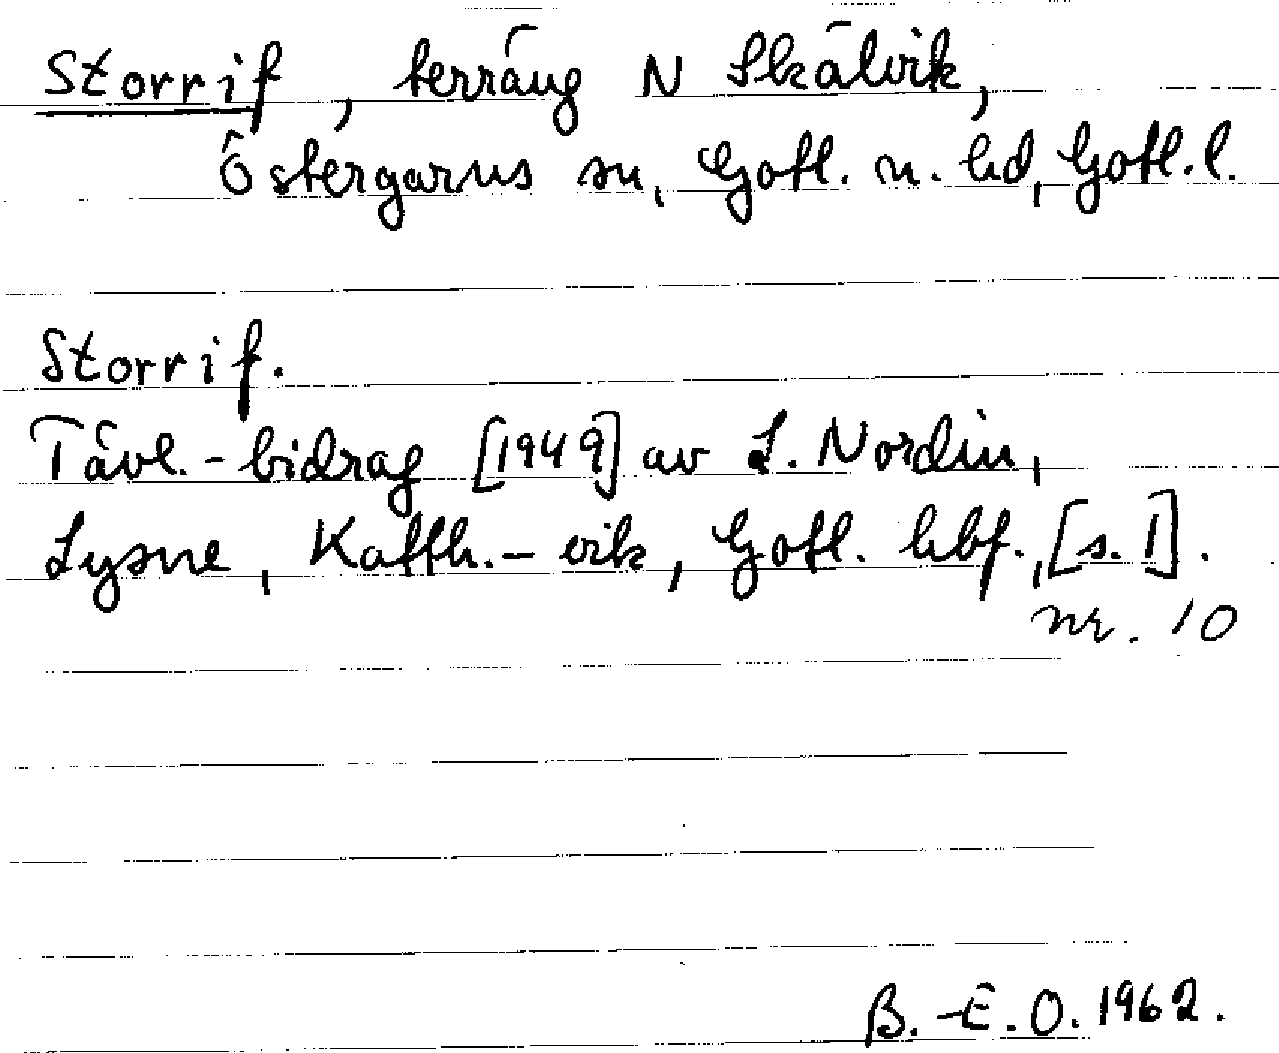 Storrif, terräng N Skälvik,
Östergarns sn, Gotl. n. hd, Gotl. l.
Storrif.
Tävl.-bidrag [1949] av L. Nordin,
Lysne, Katth.-vik, Gotl. hbf., [s. 1].
nr. 10
B.-E.O. 1962.